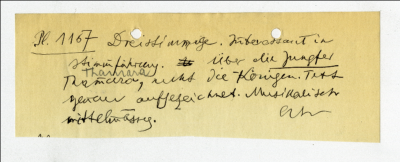 Pl. 1167 Dreistimmige. Interessant in
Stimmführung. über die Jungfer
Thamara
Thamara, nicht die Königin. Text
genau aufgezeichnet. Musikalisch
mittelmässig.